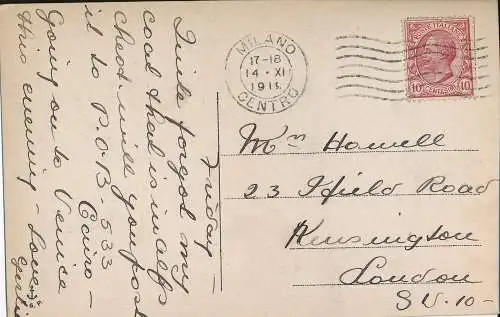 Friday -
Quite forgot my
coat that is in
chest - will you post
it to P.O.B - 533
Cairo -
Going on to Venice
this evening - Love
MILANO
17-18
14 · XI
CENTRO
POSTE ITALIANE
10 CENTESIMI 10
Howell
23 Ifield Road
Kensington
London
S.W. 10 -